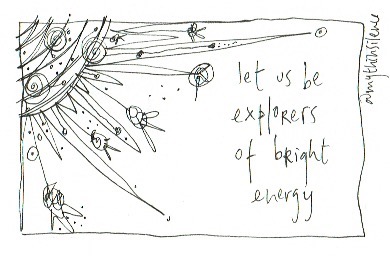 let us be
explorers
of bright
energy
amythinsilence